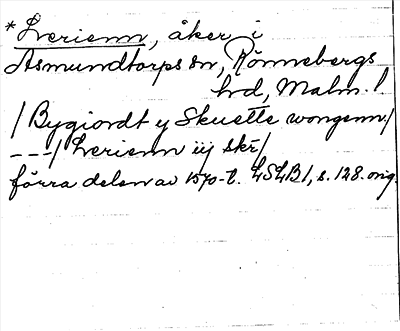 *Lerienn, åker i
Asmundtorps sn, Rönnebergs
hd, Malm. l.
/Bygiordt y Skuette wongenn/
---/Lerienn iij skr/
förra delen av 1570-t. LSLB1, s. 128. orig.